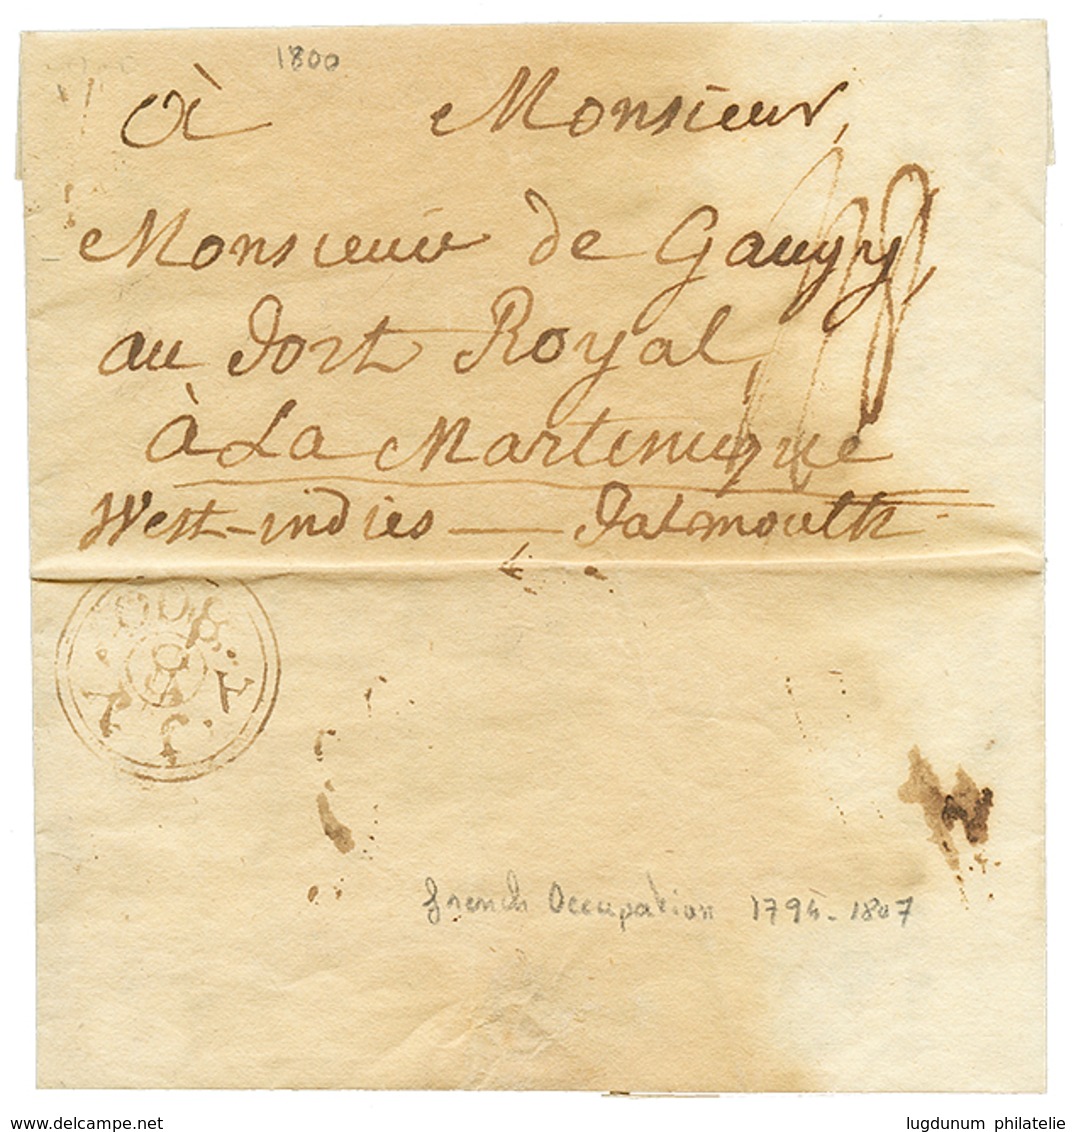 1800
à Monsieur,
Monsieur de Gaugy
au Fort Royal
à La Martinique
West-indies — Falmouth
french Occupation 1794-1807
delcampe.net
lugdunum philatelie